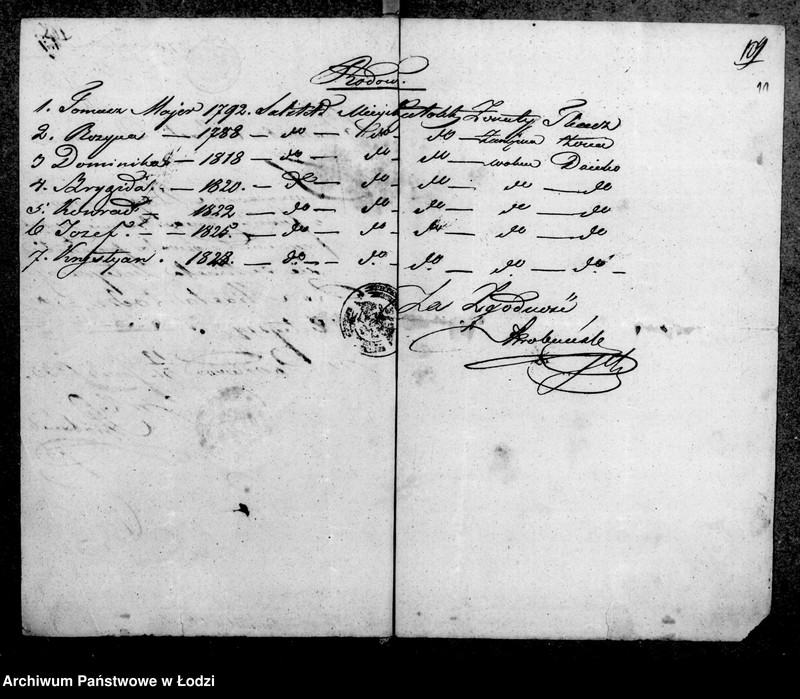 109
11
Rodow.
1. Tomasz Major 1792. Katolik Żonaty Tkacz
2. Rozyna — 1788 — do — do — do — Zamężna Żona
3 Dominika — 1818 — do — do — do — wolna Dziecko
4. Brygida — 1820. — do — do — do — do — do
5. Konrad — 1822 — do — do — do — do — do
6 Jozef — 1825 — do — do — do — do — do
7. Krystyan. 1828. — do — do — do — do — do —
Za Zgodność
Archiwum Państwowe w Łodzi